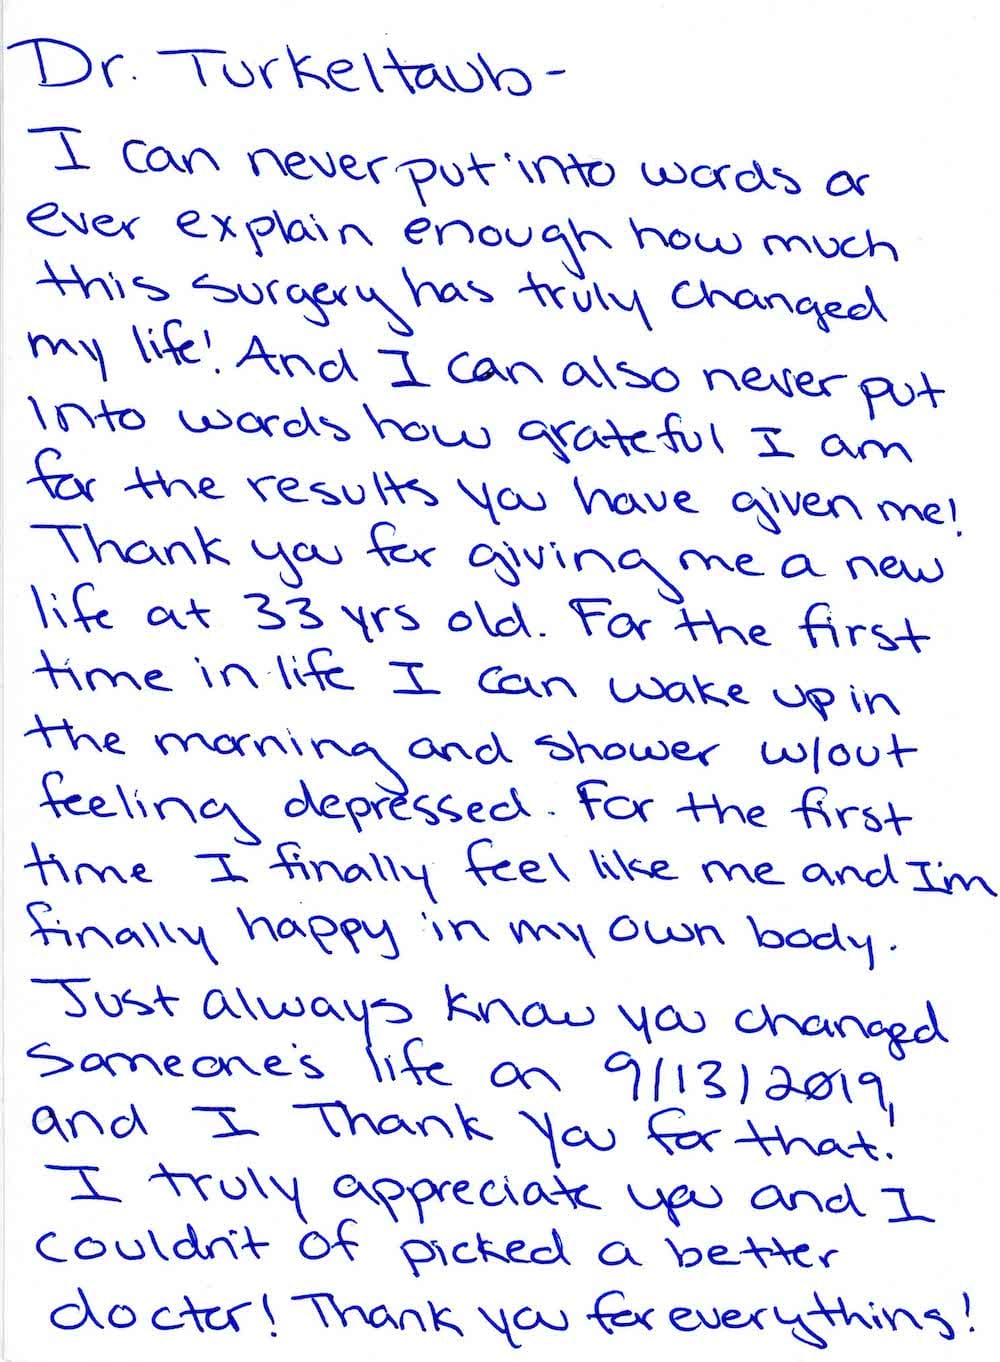 Dr. Turkeltaub-
I can never put into words or
ever explain enough how much
this surgery has truly changed
my life! And I can also never put
into words how grateful I am
for the results you have given me!
Thank you for giving me a new
life at 33 yrs old. For the first
time in life I can wake up in
the morning and shower w/out
feeling depressed. For the first
time I finally feel like me and I'm
finally happy in my own body.
Just always know you changed
someone's life on 9/13/2019,
and I Thank you for that!
I truly appreciate you and I
couldn't of picked a better
doctor! Thank you for everything!